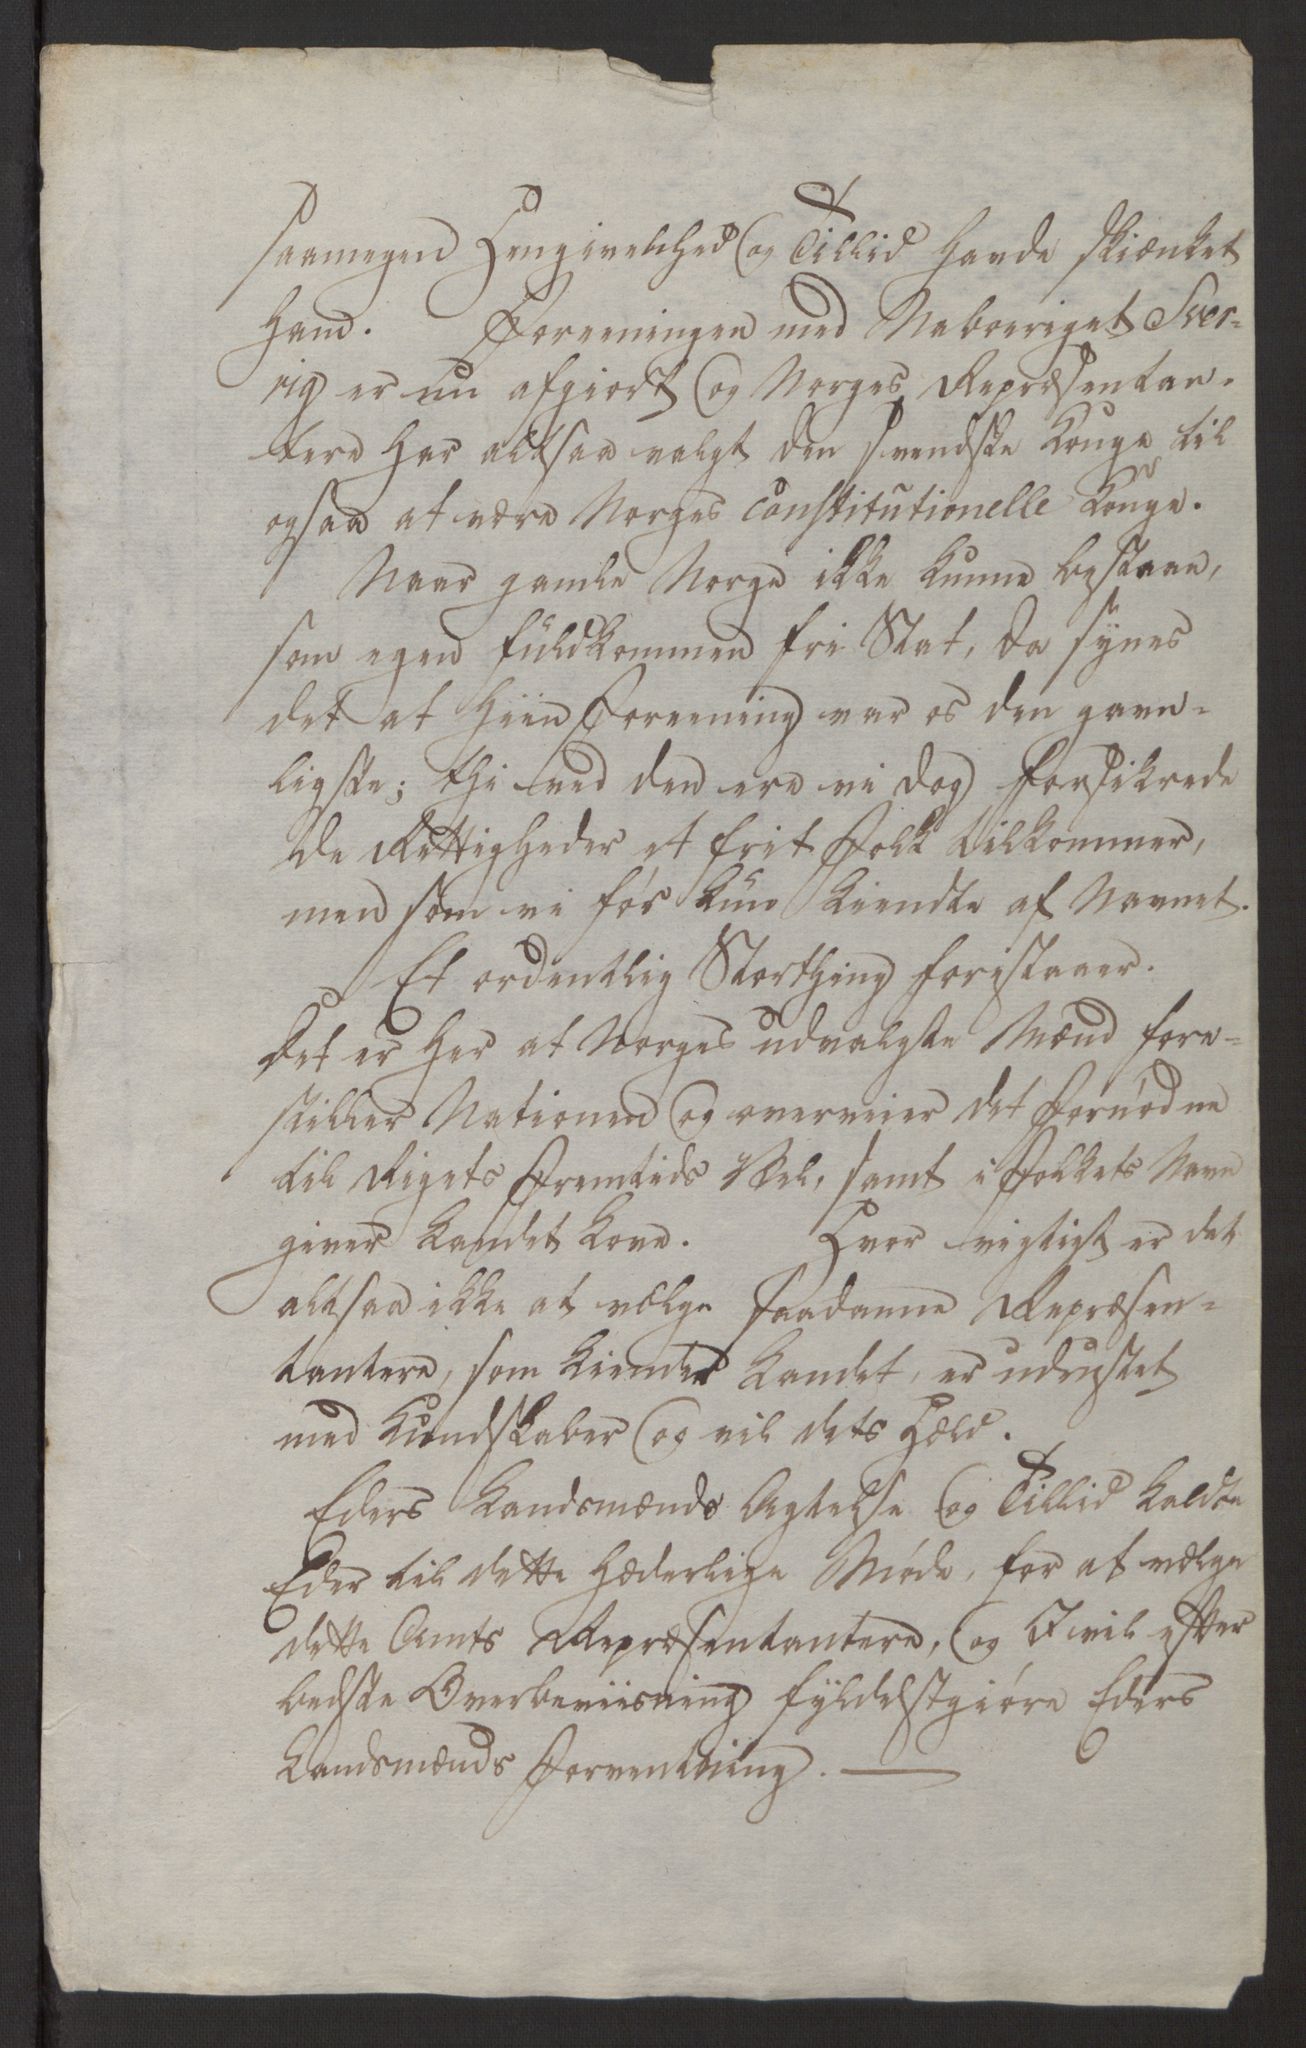 saamegen Hengivenhed og Tillid havde skiænket
ham. Foreeningen med Naboeriget Sver-
rig er nu afgiort og Norges Repræsentan-
tere har altsaa valgt den svendske Konge til
ogsaa at være Norges Constitutionelle Konge.
Naar gamle Norge ikke kunne bestaae,
som egen fuldkommen fri Stat, da synes
det at hiin Foreening var os den gavn-
ligste; thi ved den ere vi dog forsikrede
de Rettigheder et frit Folk tilkommer,
men som vi før kun kiendte af Navnet.
Et ordentlig Storthing forestaaer.
Det er her at Norges udvalgte Mænd fore-
stiller Nationen og overveier det fornødne
til Rigets Fremtids Vel, samt i Folkets Navn
giver Landet Love. Hvor vigtigt er det
altsaa ikke at vælge saadanne Repræsen-
tantere, som kiender Landet, er udrustet
med Kundskaber og vil dets Held.
Eders Landsmænds Agtelse og Tillid kaldte
Eder til dette hæderlige Møde, for at vælge
dette Amts Repræsentantere, og I vil efter
bedste Overbeviisning fyldestgiøre Eders
Landsmænds Forventning.